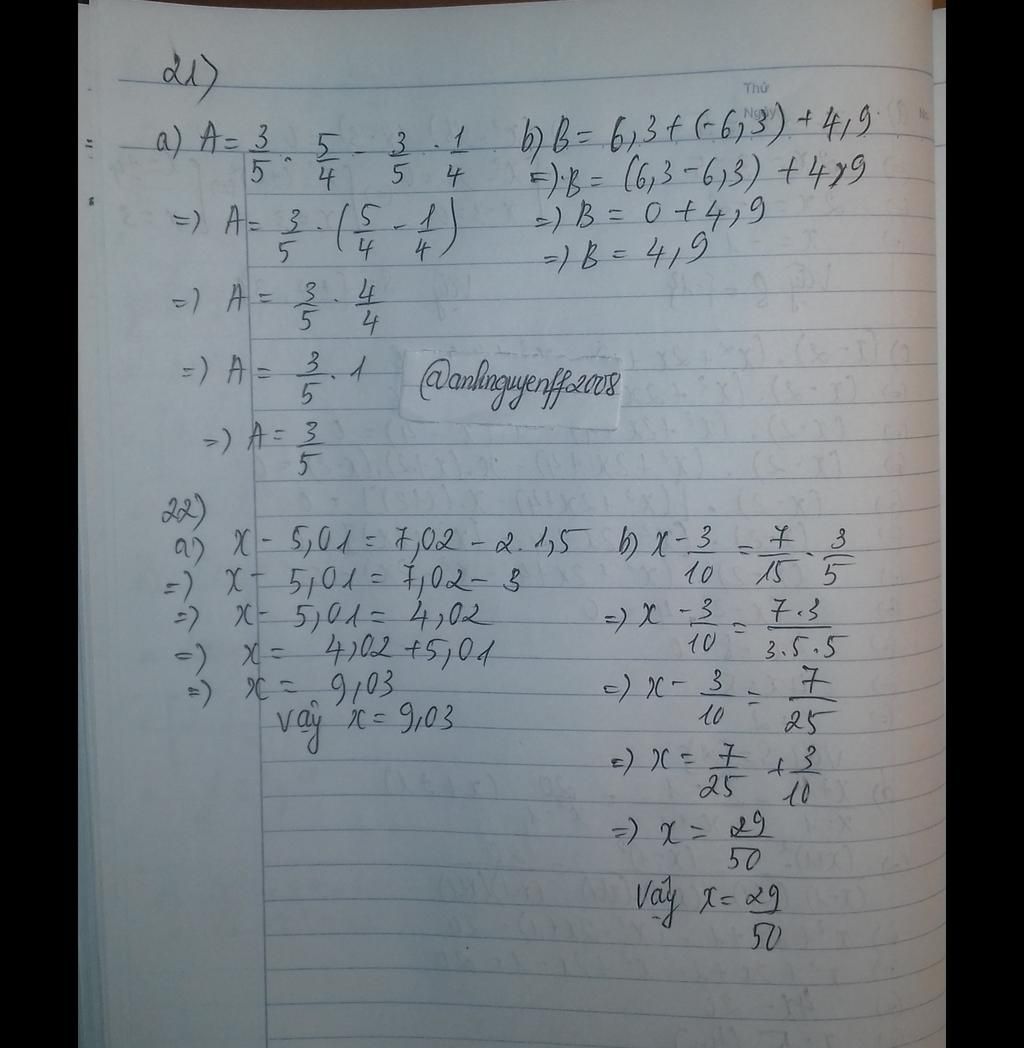 Thứ
Ngày
21)
a) A = 3/5 . 5/4 - 3/5 . 1/4
=) A = 3/5 . (5/4 - 1/4)
=) A = 3/5 . 4/4
=) A = 3/5 . 1
=) A = 3/5
b) B = 6,3 + (-6,3) + 4,9
=) B = (6,3 - 6,3) + 4,9
=) B = 0 + 4,9
=) B = 4,9
@anhnguyenff2008
22)
a) x - 5,01 = 7,02 - 2.1,5
=) x - 5,01 = 7,02 - 3
=) x - 5,01 = 4,02
=) x = 4,02 + 5,01
=) x = 9,03
vậy x = 9,03
b) x - 3/10 = 7/15 . 3/5
=) x - 3/10 = 7.3/3.5.5
=) x - 3/10 = 7/25
=) x = 7/25 + 3/10
=) x = 29/50
Vậy x = 29/50